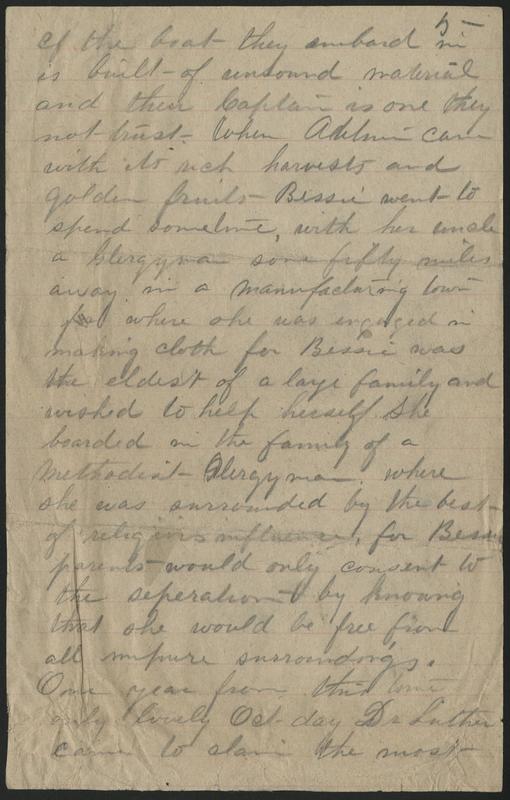 5—
of the boat they embard in
is built of unsound material
and their Captain is one they
not trust. When Autumn came
with its rich harvests and
golden fruits Bessie went to
spend sometime, with her uncle
a Clergyman some fifty miles
away in a manufacturing town
where she was engaged in
making cloth for Bessie was
the eldest of a large family and
wished to help herself. She
boarded in the family of a
Methodist Clergyman, where
she was surrounded by the best
of religious influences, for Bessie
parents would only consent to
the seperation by knowing
that she would be free from
all impure surroundings.
One year from this time
only lovely Oct day Dr Luther
came to claim the most